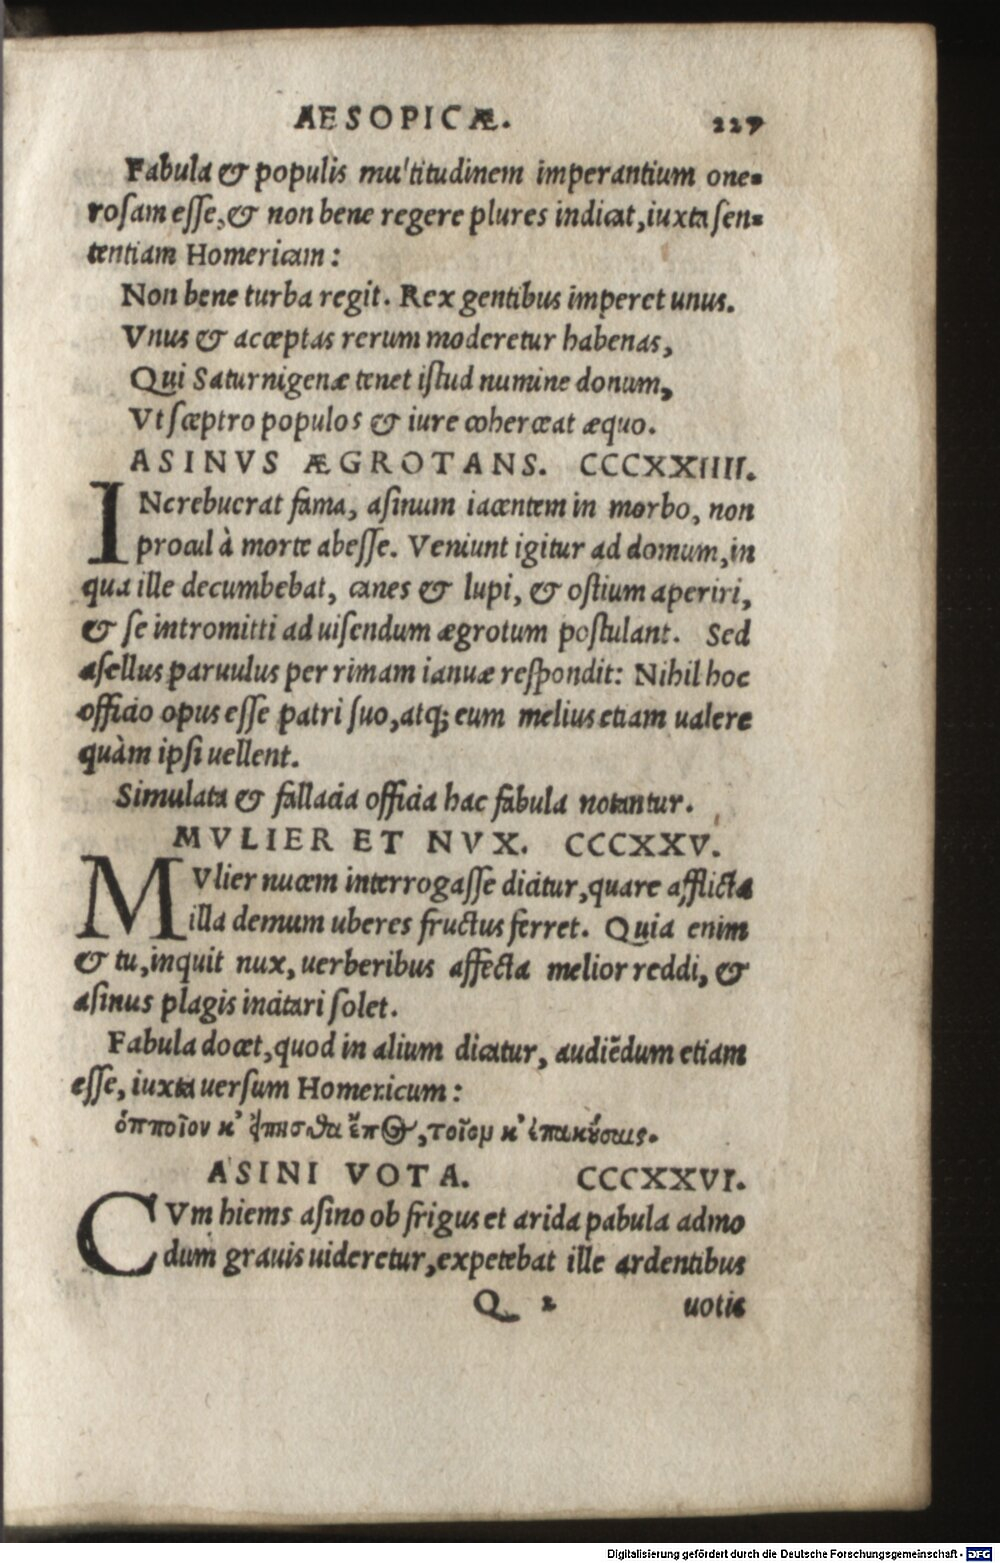 AESOPICÆ. 227
Fabula & populis mu'titudinem imperantium one-
rosam esse, & non bene regere plures indicat, iuxta sen-
tentiam Homericam:
Non bene turba regit. Rex gentibus imperet unus.
Vnus & acceptas rerum moderetur habenas,
Qui Saturnigenæ tenet istud numine donum,
Vt sceptro populos & iure coherceat æquo.
ASINVS ÆGROTANS. CCCXXIIII.
INcrebuerat fama, asinum iacentem in morbo, non
procul à morte abesse. Veniunt igitur ad domum, in
qua ille decumbebat, canes & lupi, & ostium aperiri,
& se intromitti ad uisendum ægrotum postulant. Sed
asellus paruulus per rimam ianuæ respondit: Nihil hoc
officio opus esse patri suo, atq; eum melius etiam ualere
quàm ipsi uellent.
Simulata & fallacia officia hac fabula notantur.
MVLIER ET NVX. CCCXXV.
MVlier nucem interrogasse dicitur, quare afflicta
illa demum uberes fructus ferret. Quia enim
& tu, inquit nux, uerberibus affecta melior reddi, &
asinus plagis incitari solet.
Fabula docet, quod in alium dicatur, audiẽdum etiam
esse, iuxta uersum Homericum:
ὁπποῖον κ' εἴπησθα ἔπος, τοῖομ κ' ἐπακούσαις.
ASINI VOTA. CCCXXVI.
CVm hiems asino ob frigus et arida pabula admo
dum grauis uideretur, expetebat ille ardentibus
Q 2 uotis
Digitalisierung gefördert durch die Deutsche Forschungsgemeinschaft - DFG